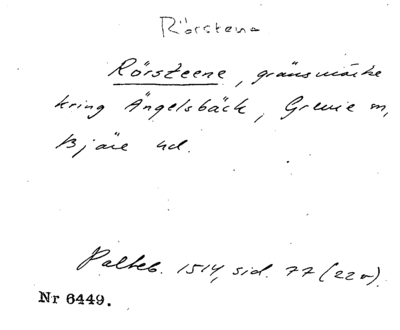 Rörstena
Rörsteene, gränsmärke
kring Ängelsbäck, Grevie sn,
Bjäre hd.
Palteb. 1514, sid. 77 (22v).
Nr 6449.